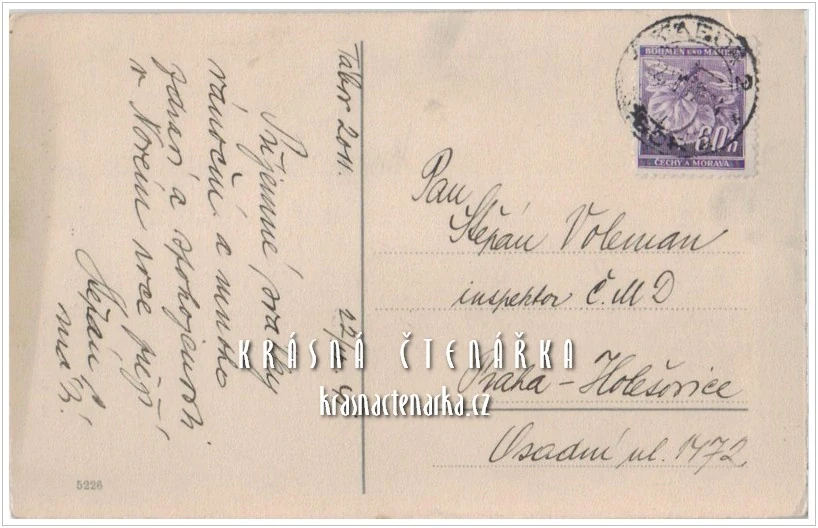 Tábor 2011.
Příjemné svátky
vánoční a mnoho
zdraví a spokojenosti
v Novém roce přejí
BÖHMEN UND MÄHREN
60h
ČECHY A MORAVA
Pan
Štěpán Voleman
inspektor Č.M.D
Praha-Holešovice
Osadní ul. 1472.
KRÁSNÁ ČTENÁŘKA
krasnactenarka.cz
5226